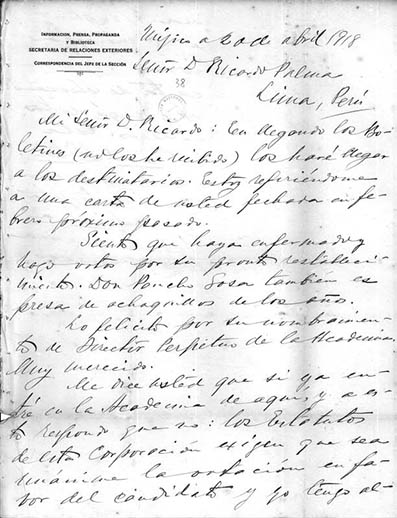 INFORMACION, PRENSA, PROPAGANDA
Y BIBLIOTECA
SECRETARIA DE RELACIONES EXTERIORES
CORRESPONDENCIA DEL JEFE DE LA SECCIÓN
Méjico a 20 de abril 1918
Señor D Ricardo Palma
38
Lima, Perú
Mi Señor D. Ricardo: En llegando los Bo-
letines (no los he recibido) los haré llegar
a los destinatarios. Estoy refiriéndome
a una carta de usted fechada en fe-
brero próximo pasado.
Siento que haya enfermado y
hago votos por su pronto restableci-
miento. Don Pancho Sosa también es
presa de achaquillos de los años.
Lo felicito por su nombramien-
to de Director Perpetuo de la Academia.
Muy merecido.
Me dice usted que si ya en-
tré en la Academia de aquí, y a es-
to respondo que no: los Estatutos
de esta Corporación exigen que sea
unánime la votación en fa-
vor del candidato y yo tengo al-